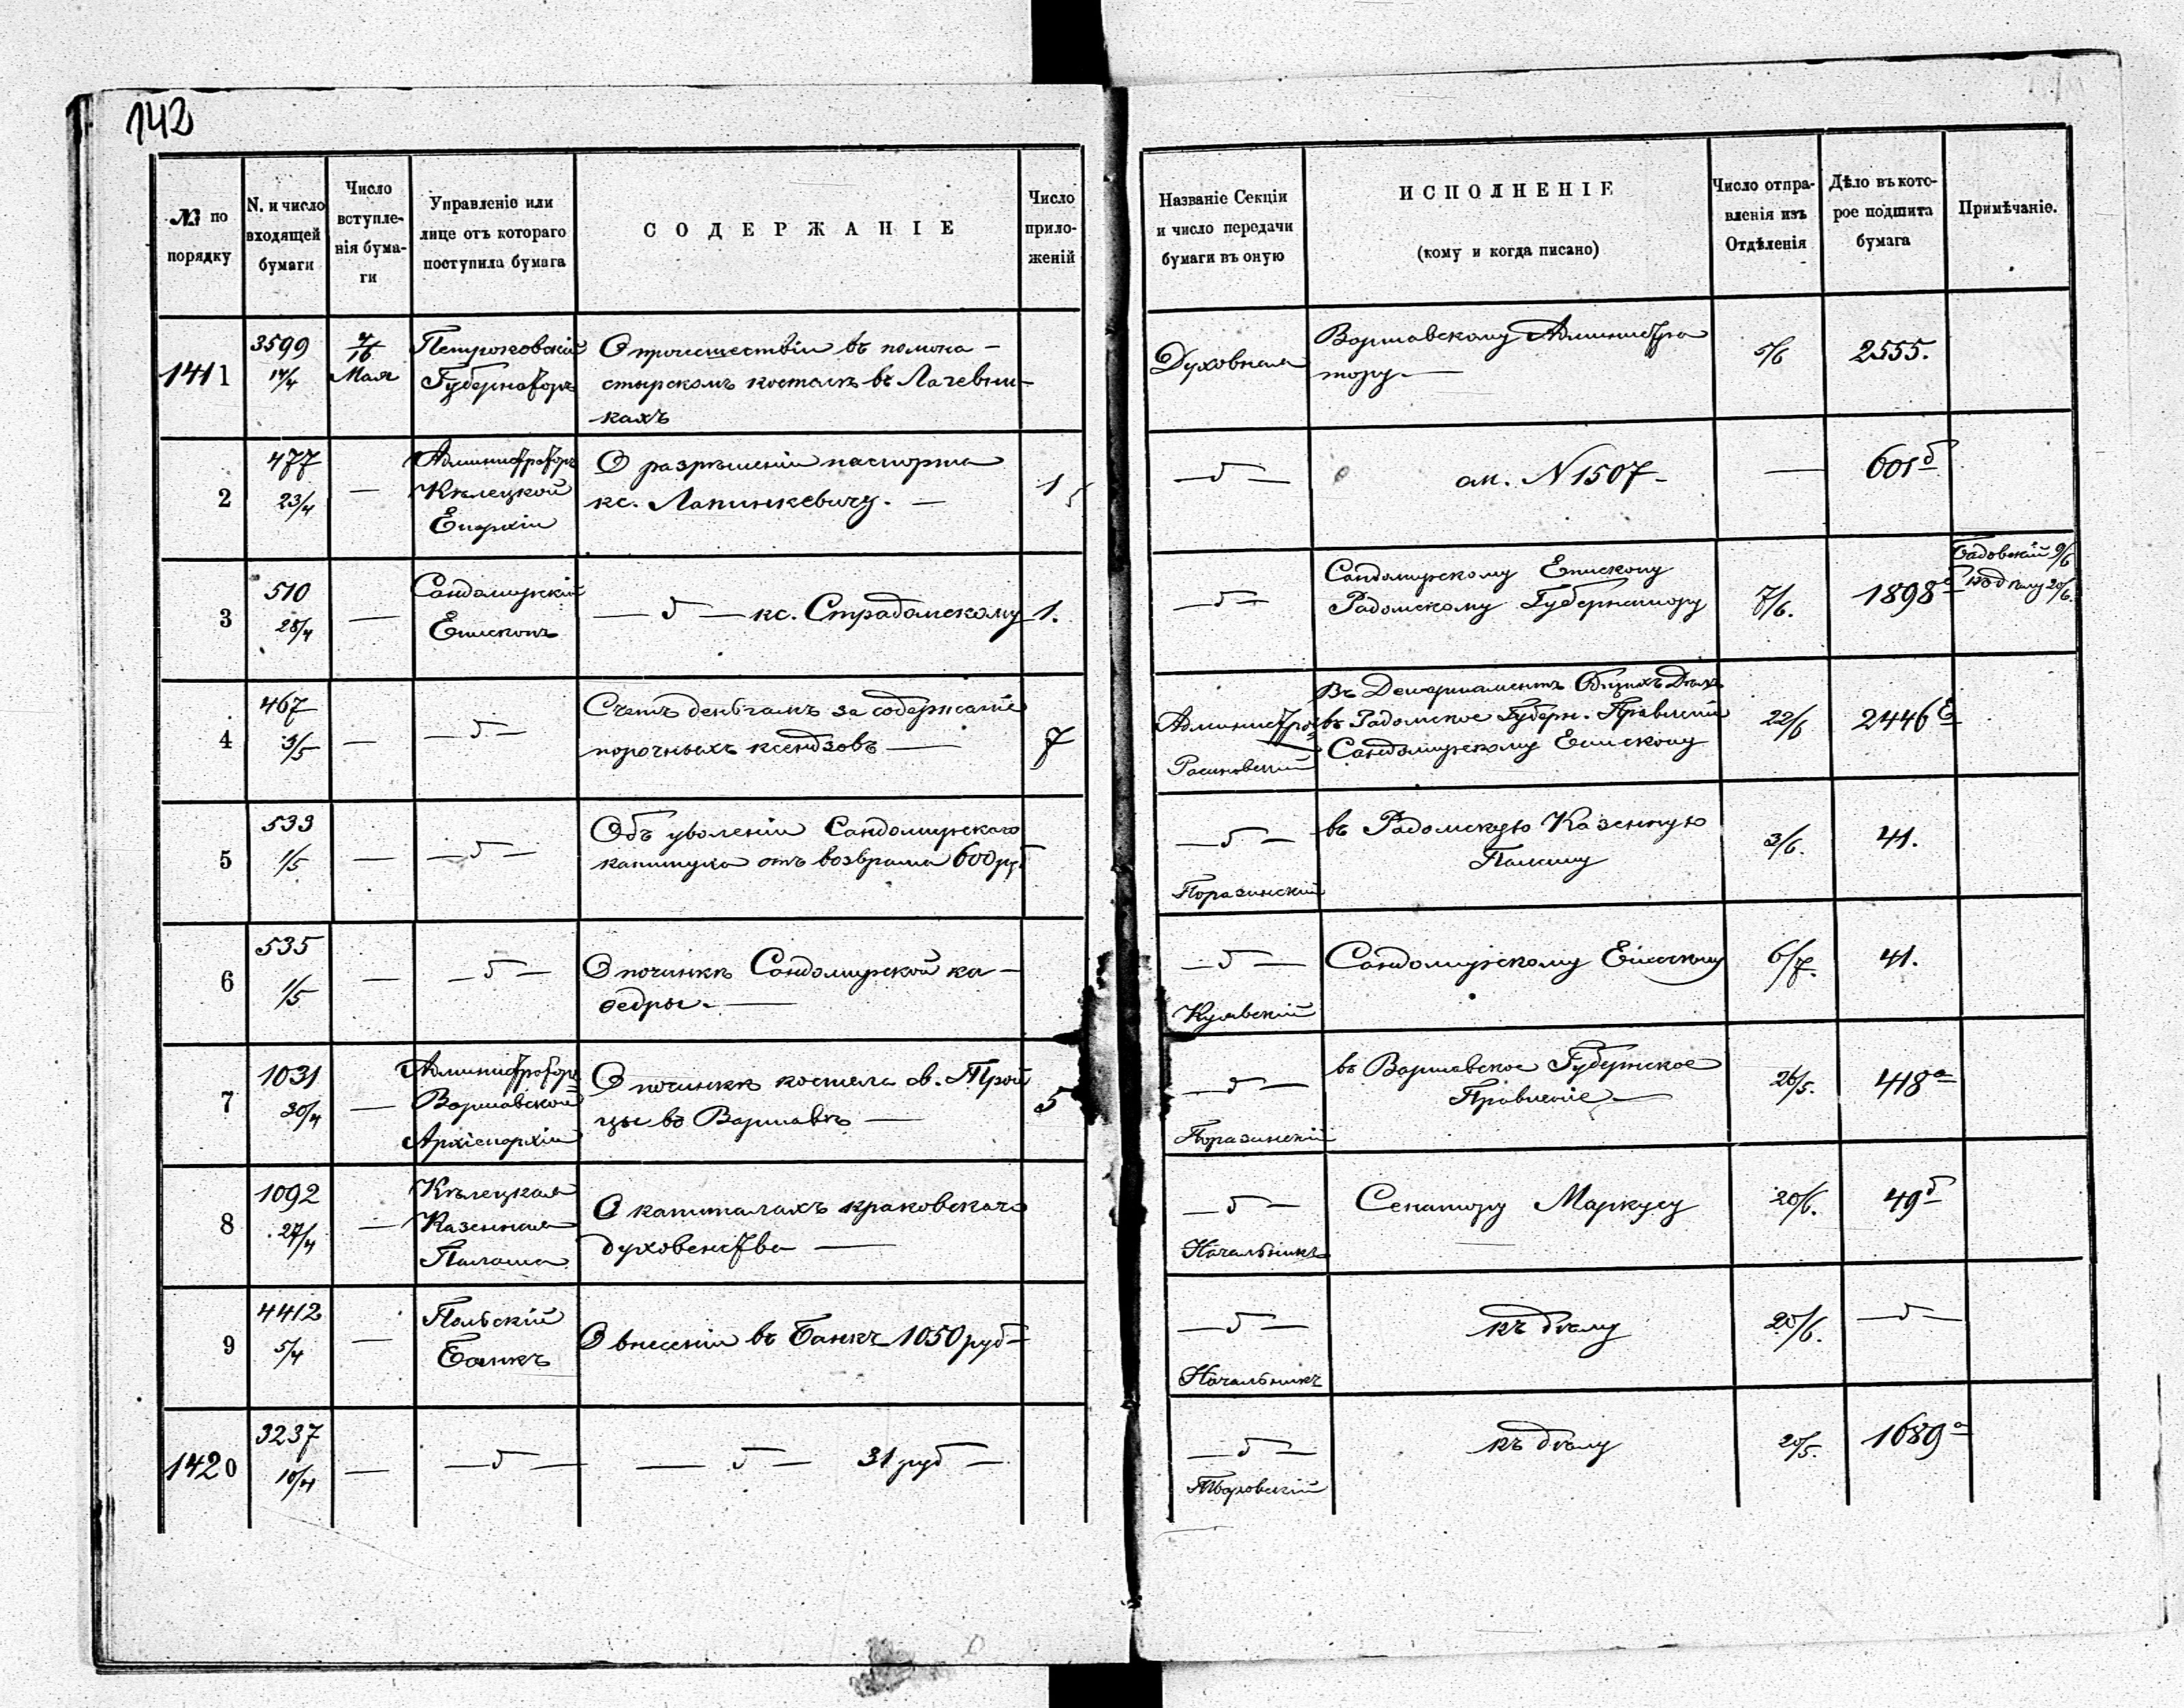 142
№ по порядку
N. и число входящей бумаги
Число вступле-нія бума-ги
Управленіе или лице отъ котораго поступила бумага
СОДЕРЖАНІЕ
Число прило-женій
Названіе Секціи и число передачи бумаги въ оную
ИСПОЛНЕНІЕ
(кому и когда писано)
Число отпра-вленія изъ Отдѣленія
Дѣло въ кото-рое подшита бумага
Примѣчаніе.
1411
3599
14/4
4/16
Мая
Петроковскій
Губернаторъ
О происшествіи въ помона-
стырскомъ костелѣ въ
кахъ
Духовная
Варшавскому Администра
тору —
5/6
2555.
2
477
23/4
—
Администраторъ
Кѣлецкой
Епархіи
О разрѣшеніи паспорта
кс. Лапинкевичу. —
1
— " —
ал. N 1507 -
—
601 б
3
510
28/4
—
Сандомирскій
Епископъ
— " — кс. Страдомскому
1.
— " —
Сандомирскому Епископу
Радомскому Губернатору
7/6.
1898
9/6
20/6.
4
467
3/5
—
— " —
Счетъ деньгамъ за содержаніе
порочныхъ ксендзовъ —
7
Въ Департаментъ Общихъ Дѣлъ
въ Радомское Губерн. Правленіе
Сандомирскому Епископу
22/6
2446
5
533
1/5
—
— " —
Объ уволеніи Сандомирскаго
капитула отъ возврата 600 руб
— " —
Поразинскій
въ Радомскую Казенную
Палату
3/6.
41.
6
535
1/5
—
— " —
О починкѣ Сандомирской ка-
ѳедры. —
— " —
Кулавскій
Сандомирскому Епископу
6/7.
41.
7
1031
30/4
—
Администраторъ
Варшавской
Архіепархіи
О починкѣ костела св. Трой
цы въ Варшавѣ —
5
— " —
Поразинскій
въ Варшавское Губернское
Правленіе —
26/5.
418 а
8
1092
27/4
—
Кѣлецкая
Казенная
Палата
О капиталахъ краковскаго
духовенства —
— " —
Начальникъ
Сенатору Маркусу
20/6.
49 б
9
4412
5/4
—
Польскій
Банкъ
О внесеніи въ Банкъ 1050 руб -
— " —
Начальникъ
къ дѣлу
20/6.
— " —
1420
3237
10/4
—
— " —
— " — 31 руб —
— " —
къ дѣлу
20/5.
1689 а